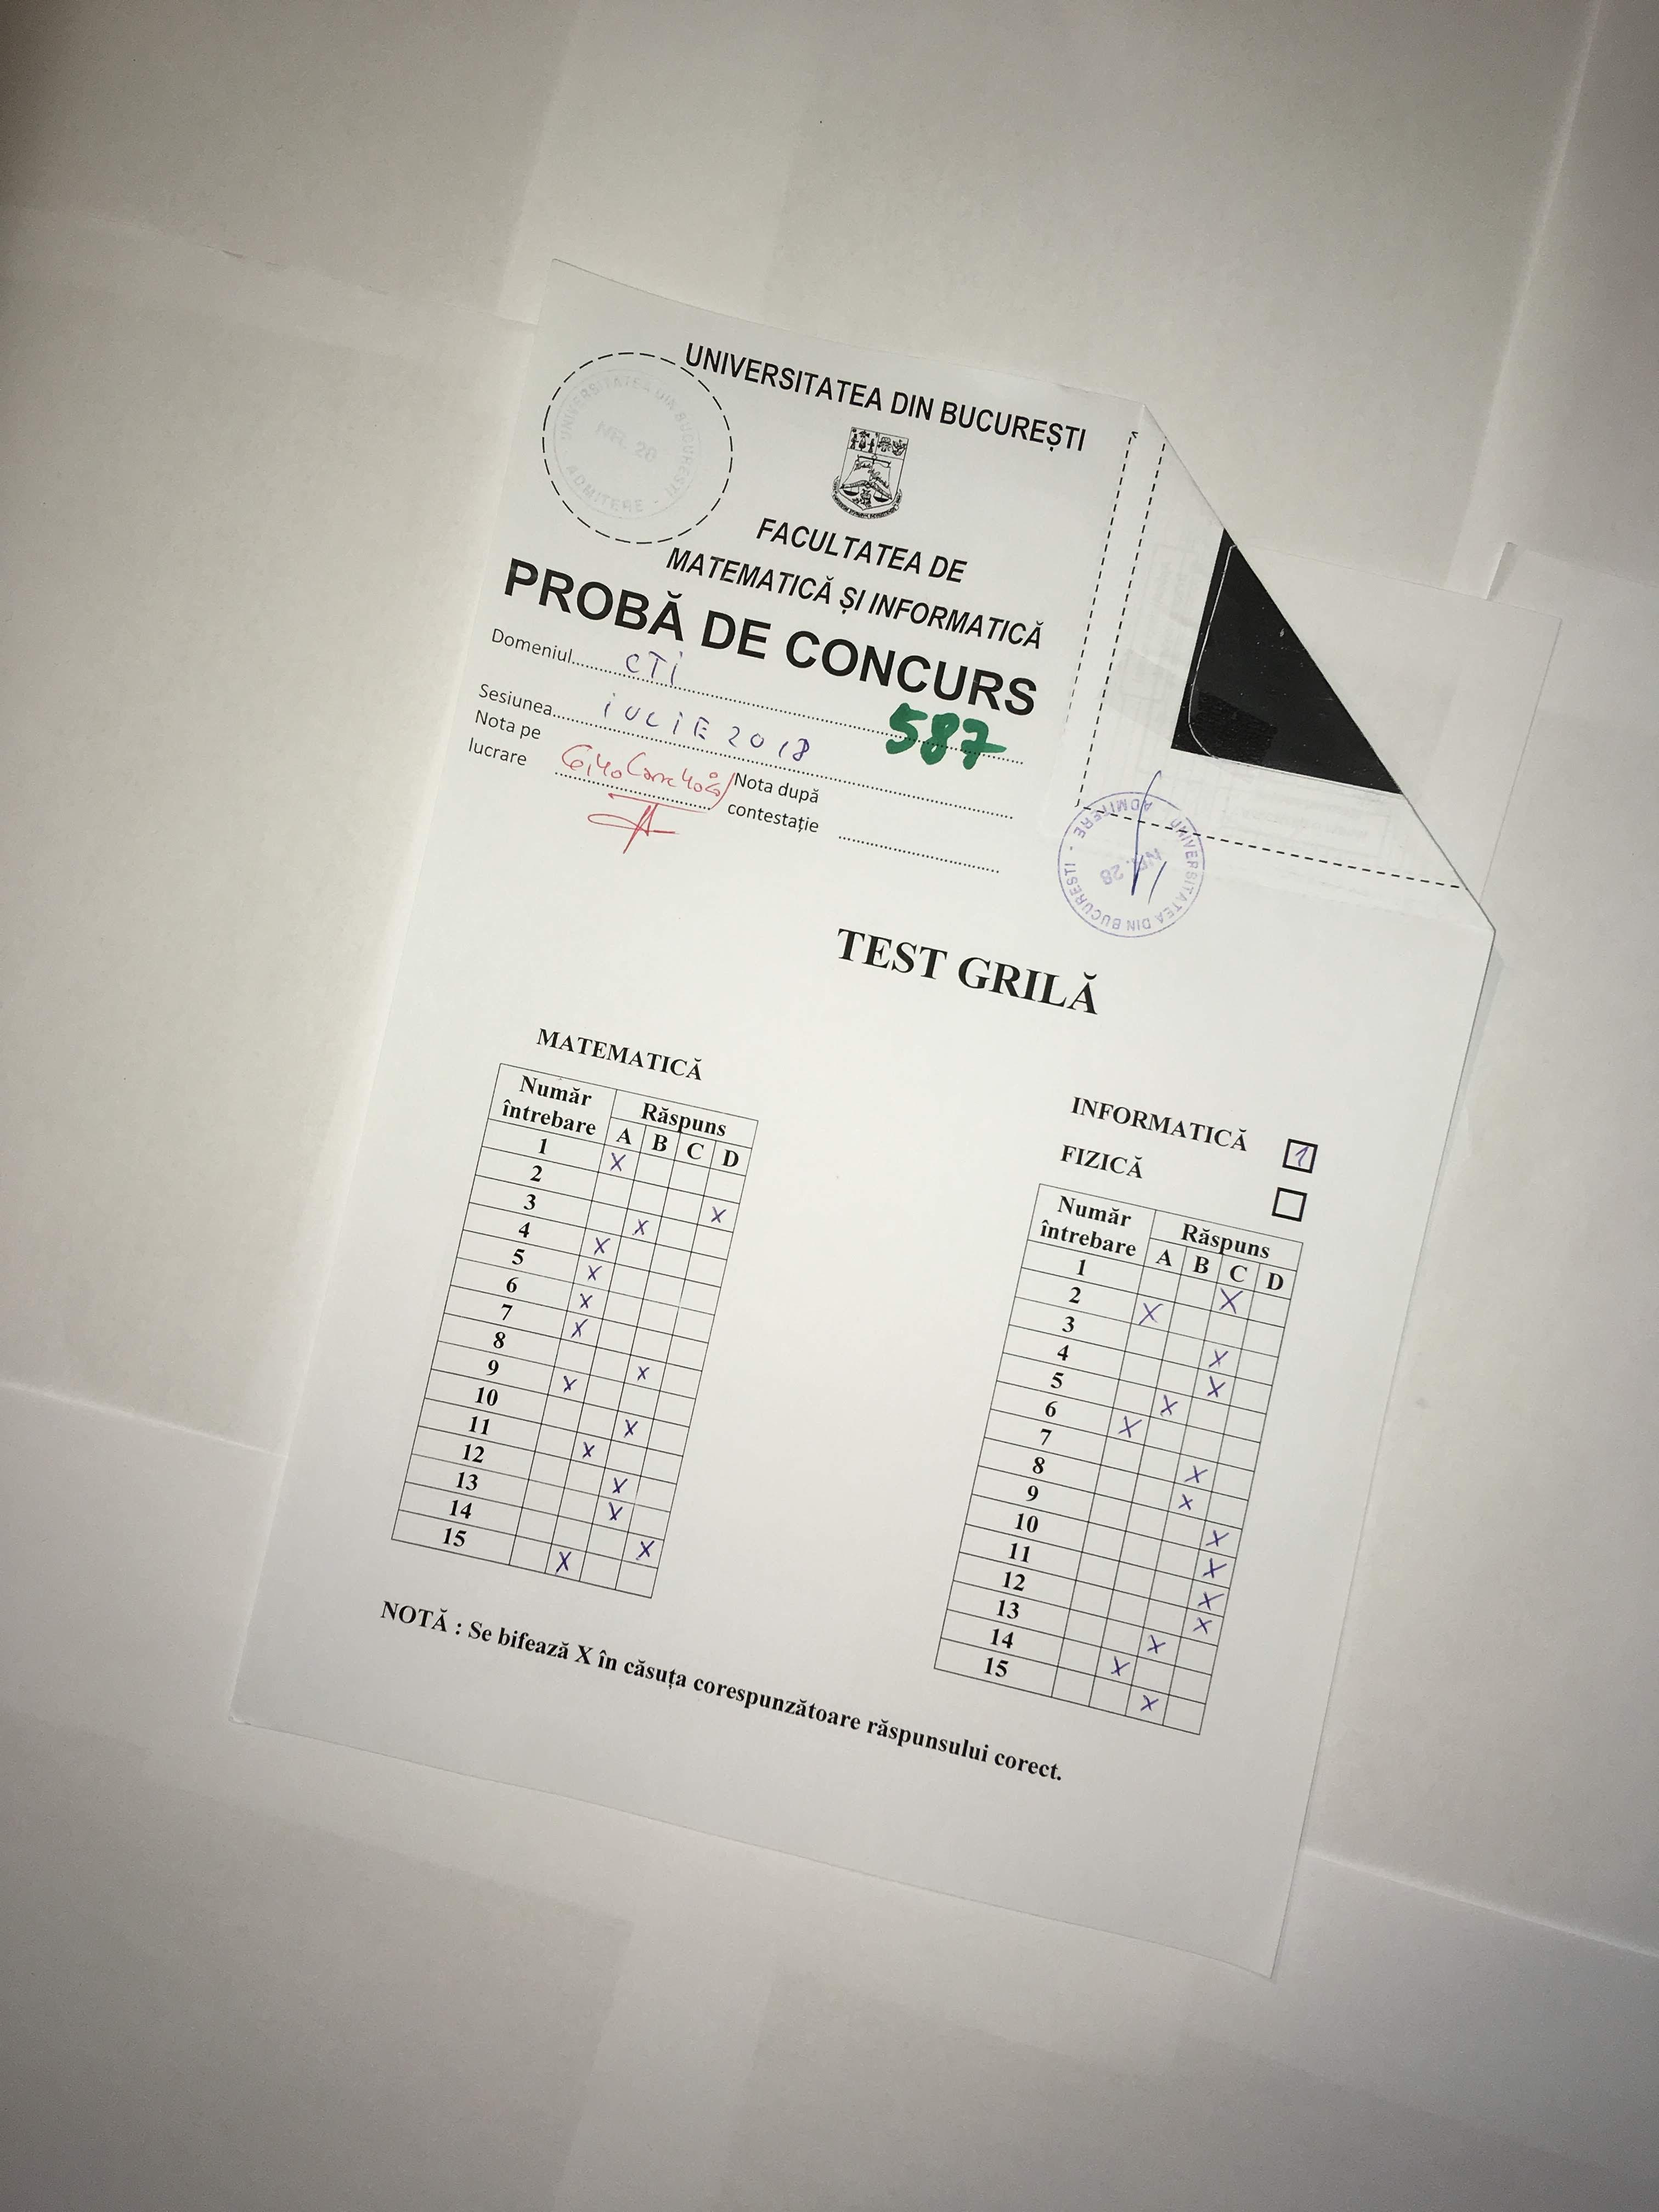 UNIVERSITATEA DIN BUCUREȘTI
UNIVERSITATEA DIN BUCUREȘTI
ADMITERE
FACULTATEA DE
MATEMATICĂ ȘI INFORMATICĂ
PROBĂ DE CONCURS
Domeniul CTI
587
Sesiunea IULIE 2018
Nota pe lucrare 6,40
Nota după contestație
UNIVERSITATEA DIN BUCUREȘTI - ADMITERE -
28
TEST GRILĂ
MATEMATICĂ
Număr întrebare Răspuns
A B C D
1 X
2 X
3 X
4 X
5 X
6 X
7 X
8 X
9 X
10 X
11 X
12 X
13 X
14 X
15 X
INFORMATICĂ 1
FIZICĂ
Număr întrebare Răspuns
A B C D
1 X
2 X
3 X
4 X
5 X
6 X
7 X
8 X
9 X
10 X
11 X
12 X
13 X
14 X
15 X
NOTĂ : Se bifează X în căsuța corespunzătoare răspunsului corect.